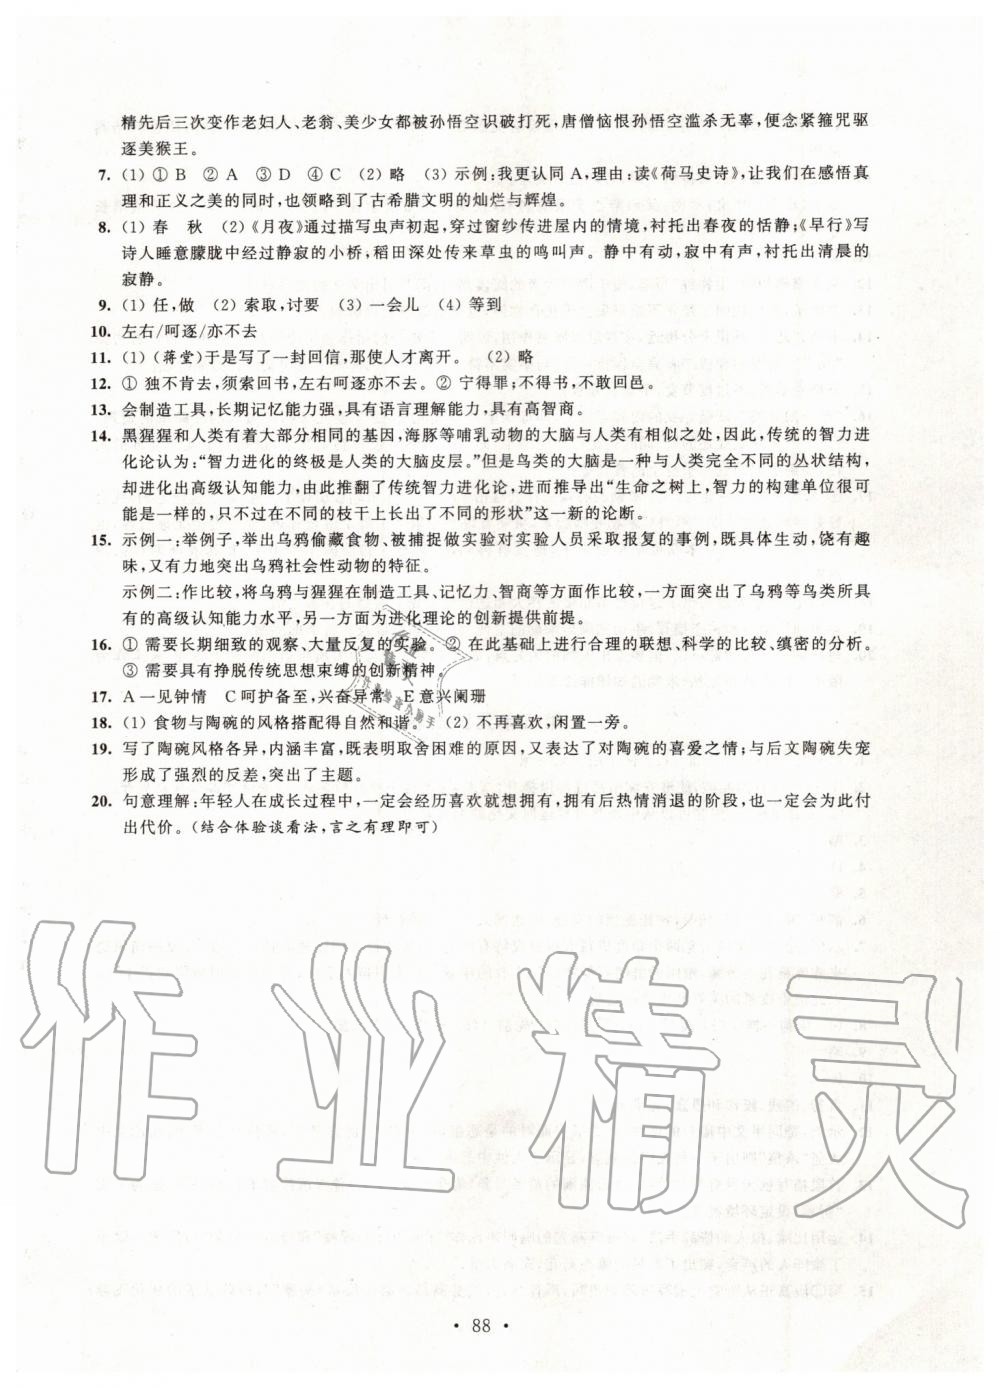 精先后三次变作老妇人、老翁、美少女都被孙悟空识破打死，唐僧恼恨孙悟空滥杀无辜，便念紧箍咒驱
逐美猴王。
7. (1) ① B ② A ③ D ④ C (2) 略 (3) 示例：我更认同 A，理由：读《荷马史诗》，让我们在感悟真
理和正义之美的同时，也领略到了古希腊文明的灿烂与辉煌。
8. (1) 春 秋 (2)《月夜》通过描写虫声初起，穿过窗纱传进屋内的情境，衬托出春夜的恬静；《早行》写
诗人睡意朦胧中经过静寂的小桥，稻田深处传来草虫的鸣叫声。静中有动，寂中有声，衬托出清晨的
寂静。
9. (1) 任，做 (2) 索取，讨要 (3) 一会儿 (4) 等到
10. 左右/呵逐/亦不去
11. (1) (蒋堂)于是写了一封回信，那使人才离开。 (2) 略
12. ① 独不肯去，须索回书，左右呵逐亦不去。② 宁得罪；不得书，不敢回邑。
13. 会制造工具，长期记忆能力强，具有语言理解能力，具有高智商。
14. 黑猩猩和人类有着大部分相同的基因，海豚等哺乳动物的大脑与人类有相似之处，因此，传统的智力进
化论认为：“智力进化的终极是人类的大脑皮层。”但是鸟类的大脑是一种与人类完全不同的丛状结构，
却进化出高级认知能力，由此推翻了传统智力进化论，进而推导出“生命之树上，智力的构建单位很可
能是一样的，只不过在不同的枝干上长出了不同的形状”这一新的论断。
15. 示例一：举例子，举出乌鸦偷藏食物、被捕捉做实验对实验人员采取报复的事例，既具体生动，饶有趣
味，又有力地突出乌鸦社会性动物的特征。
示例二：作比较，将乌鸦与猩猩在制造工具、记忆力、智商等方面作比较，一方面突出了乌鸦等鸟类所具
有的高级认知能力水平，另一方面为进化理论的创新提供前提。
16. ① 需要长期细致的观察、大量反复的实验。② 在此基础上进行合理的联想、科学的比较、缜密的分析。
③ 需要具有挣脱传统思想束缚的创新精神。
17. A 一见钟情 C 呵护备至，兴奋异常 E 意兴阑珊
18. (1) 食物与陶碗的风格搭配得自然和谐。 (2) 不再喜欢，闲置一旁。
19. 写了陶碗风格各异，内涵丰富，既表明取舍困难的原因，又表达了对陶碗的喜爱之情；与后文陶碗失宠
形成了强烈的反差，突出了主题。
20. 句意理解：年轻人在成长过程中，一定会经历喜欢就想拥有，拥有后热情消退的阶段，也一定会为此付
出代价。（结合体验谈看法，言之有理即可）
作业精灵
• 88 •